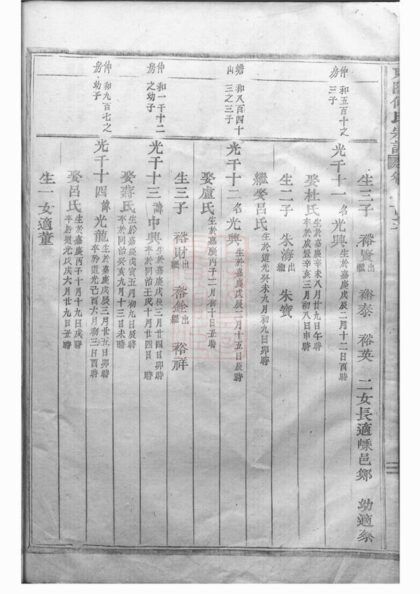 生三子 裕賢出繼 裕泰 裕英 二女長適嵊邑鄭 幼適蔡
仲房 和五百十之三子
光千十一 名光興 生於嘉慶戊辰二月十二日酉時
娶杜氏 生於嘉慶辛未八月廿九日午時
生二子 朱海出繼 朱寳
繼娶呂氏 生於道光 未九月初九日卯時
瞻山 和八百四十三之三子
光千十二 名光典 生於嘉慶戊辰 月十五日辰時
娶盧氏 生於嘉慶丙子二月初十日丑時
生三子 裕財出繼 裕 出繼 裕祥
仲房 和一千十二之幼子
光千十三 諱中興 生於嘉慶戊辰三月廿四日卯時 卒於同治壬戌十月廿四日 時
娶蔣氏 生於嘉慶戊寅五月初九日辰時 卒於同治癸亥九月十三日未時
仲房 和九百七之幼子
光千十四 諱光龍 生於嘉慶戊辰三月廿五日卯時 卒於道光己酉六月初三日酉時
娶呂氏 生於嘉慶丙子十月十九日戌時 卒於道光戊戌六月廿九日丑時
生一女適董